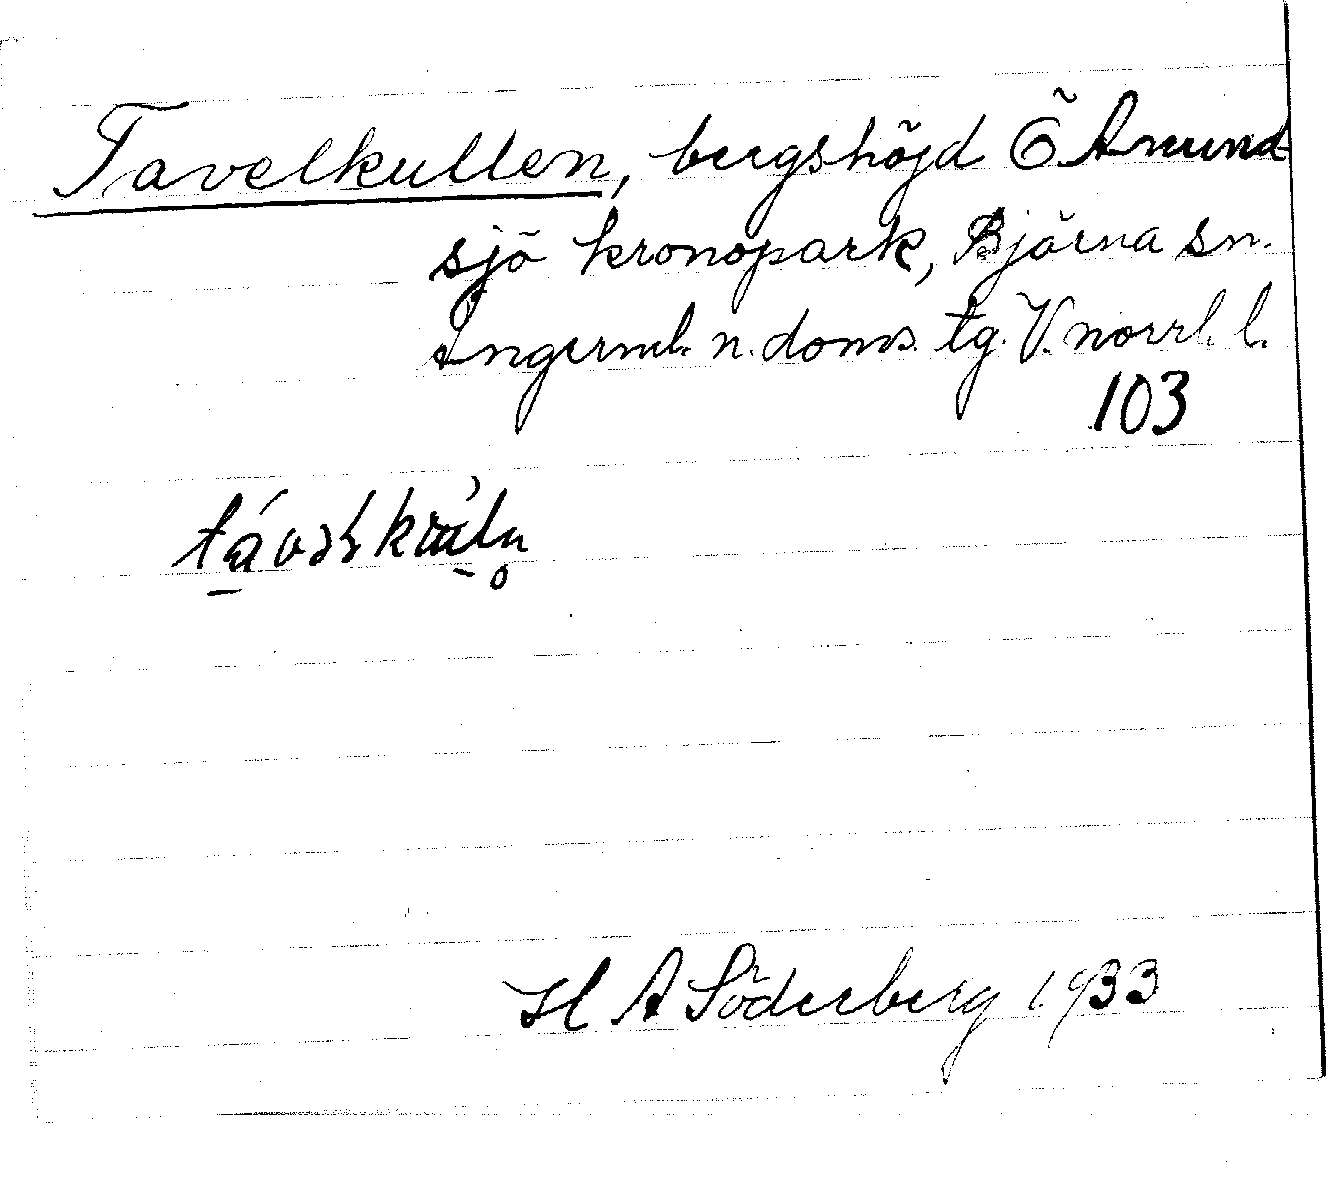 Tavelkullen, bergshöjd Ö Amund-
sjö kronopark, Björna sn.
Ångerml. n. doms. tg. V.norrl. l.
103
H A Söderberg 1933